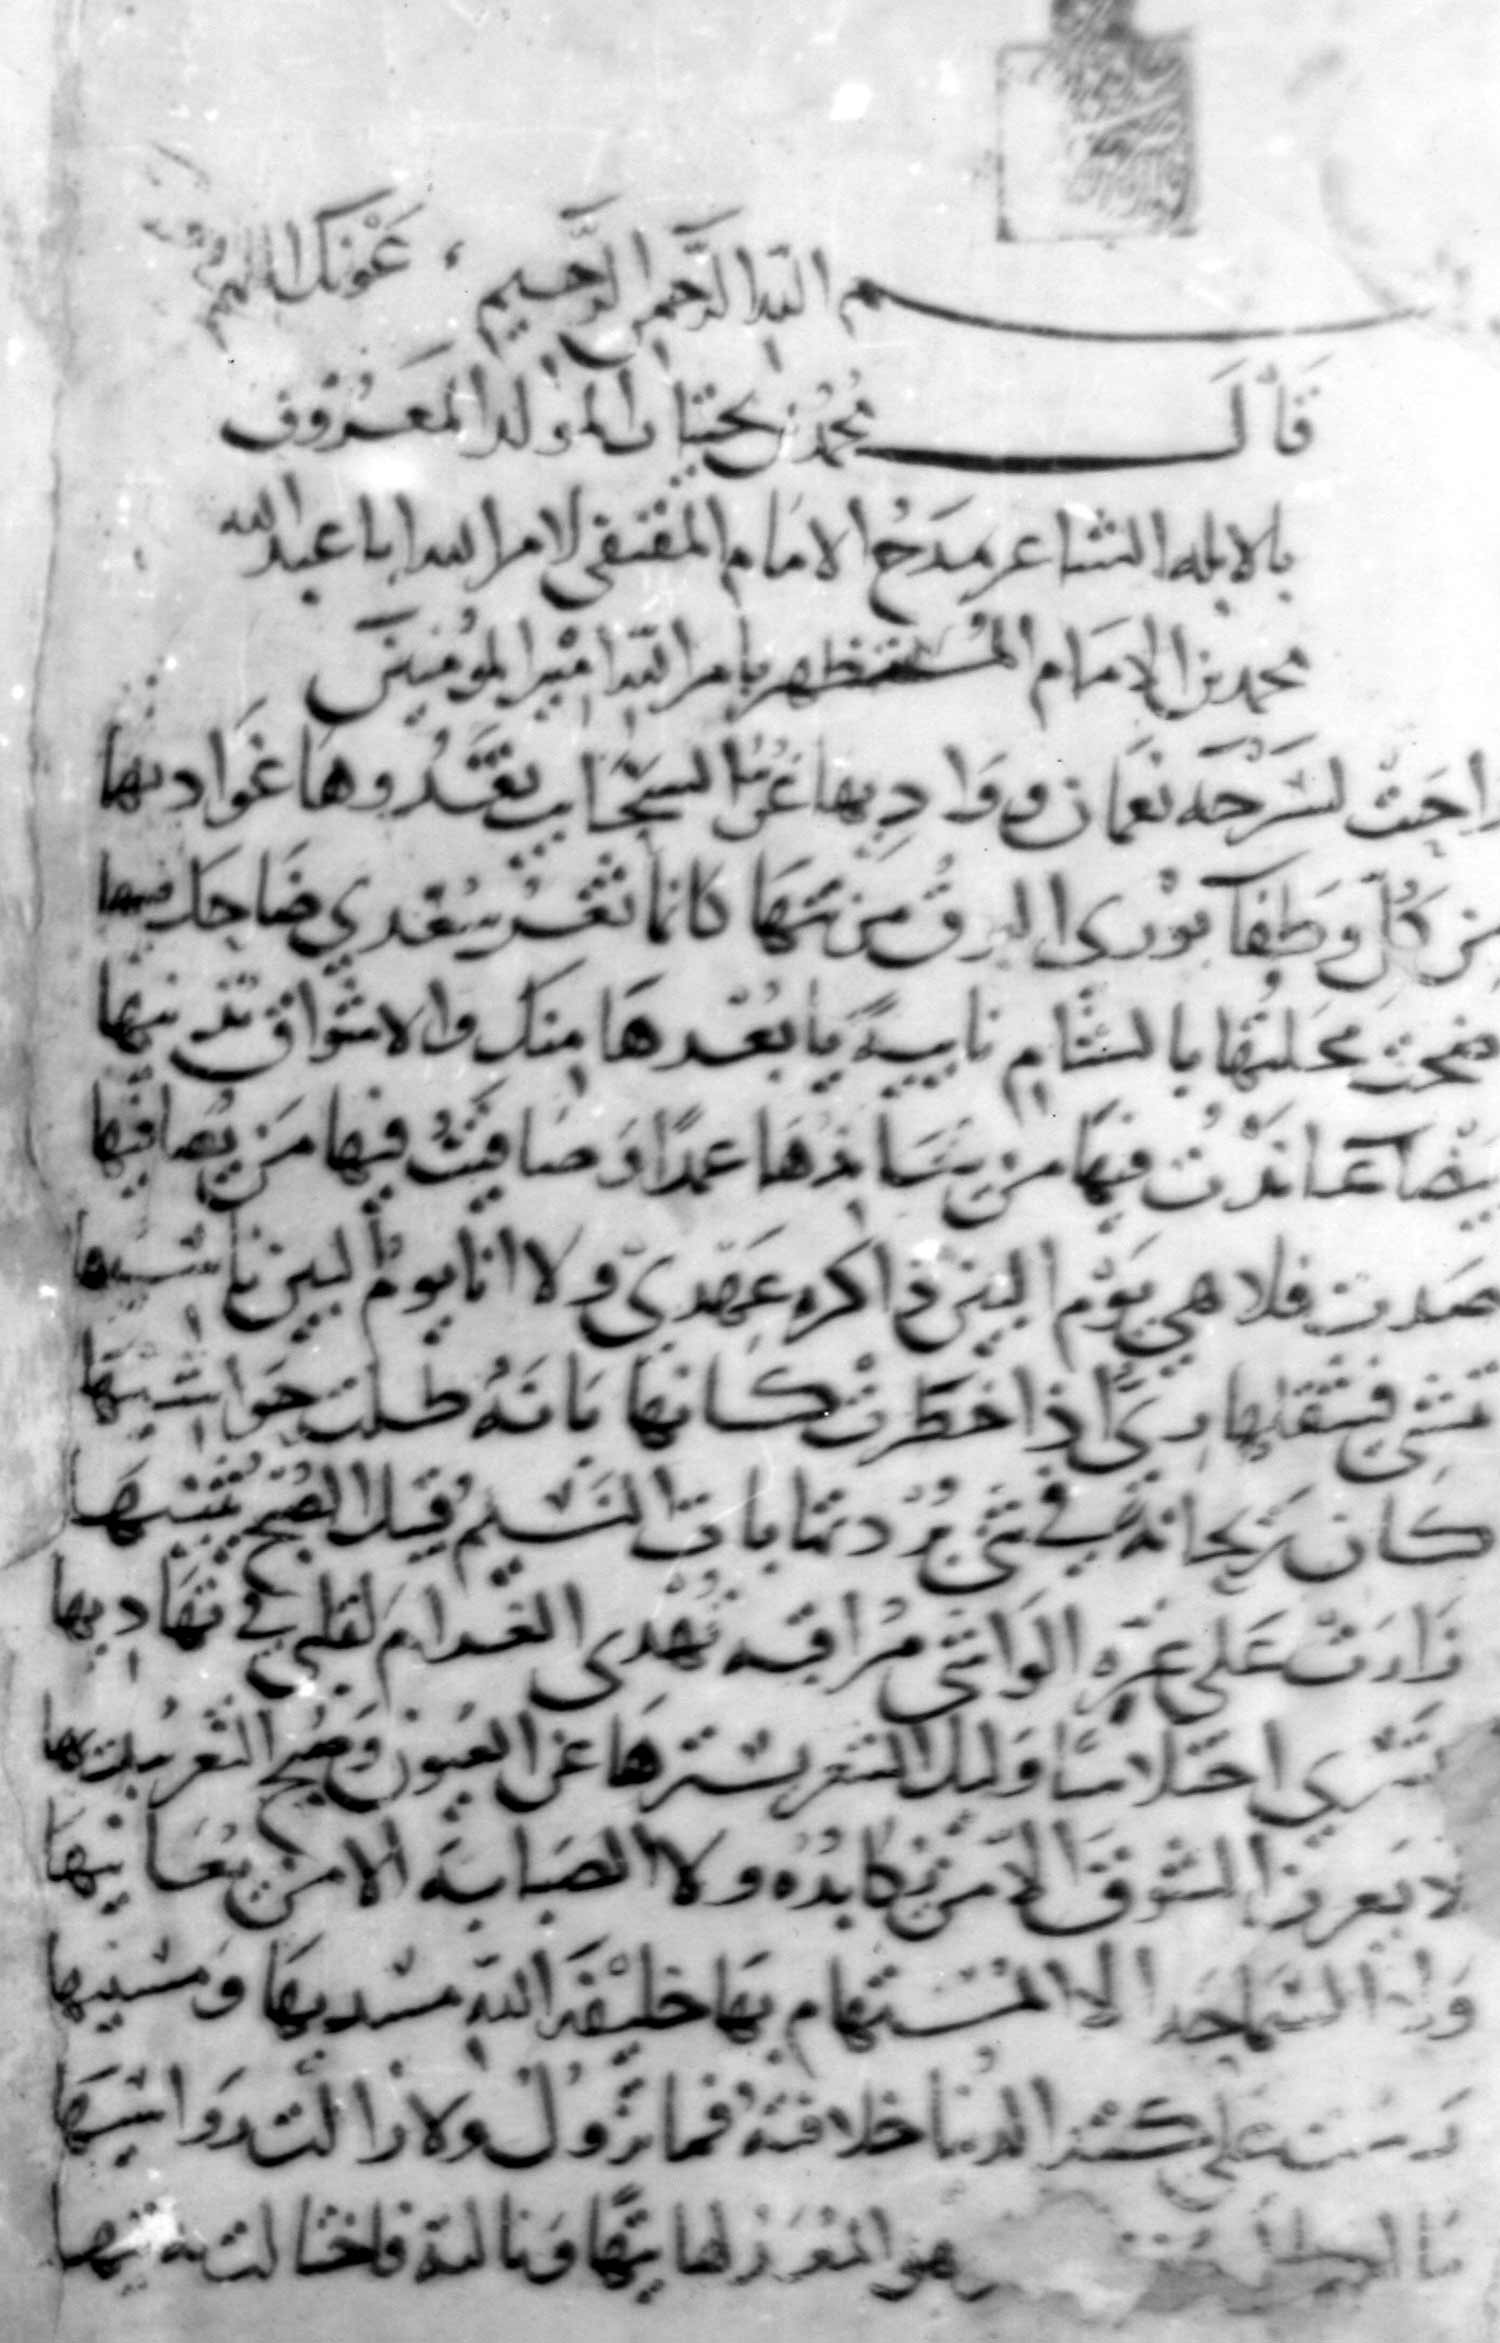 بسم الله الرحمن الرحيم ، عونك اللهم
قال محمد بن بختيار المولد المعروف
بالابله الشاعر يمدح الامام المقتفى لامر الله ابا عبد الله
محمد بن الامام المستظهر بامر الله امير المؤمنين
راحت لسرحة نعمان وواديها غر السحاب يقد وها غواديها
من كل وطفآ يورى البرق مزنتها كانما ثغر سعدي ضاحك فيها
محلتها بالشام نايية يا بعدها منك والاشواق تدنيها
بيضا عاندت فيها من يعاندها عمدا وصافيت فيها من يصافيها
صدت فلا هي يوم البين ذاكره عهدي ولا انا يوم البين ناسيها
تمشي فيثقلها ري اذا خطرت كانها بانة طلت حواشيها
كان ريحانة في ثني بردتها بات النسيم قبيل الصبح يثنيها
زارت على غرة الواشي مراقبه تهدى الغرام لقلبي في تهاديها
تسري اختلاسا وليل الشعر يسترها عن العيون وصبح الثغر يبديها
لا يعرف الشوق الا من يكابده ولا الصبابة الا من يعانيها
ولا السماحة الا المستهام بها خليفة الله مسديها ومسنيها
رست على كثر الدنيا خلافته فما تزول ولا زالت رواسيها
ما وهو المعزز لها تيها ونالته فاختالت به تيها